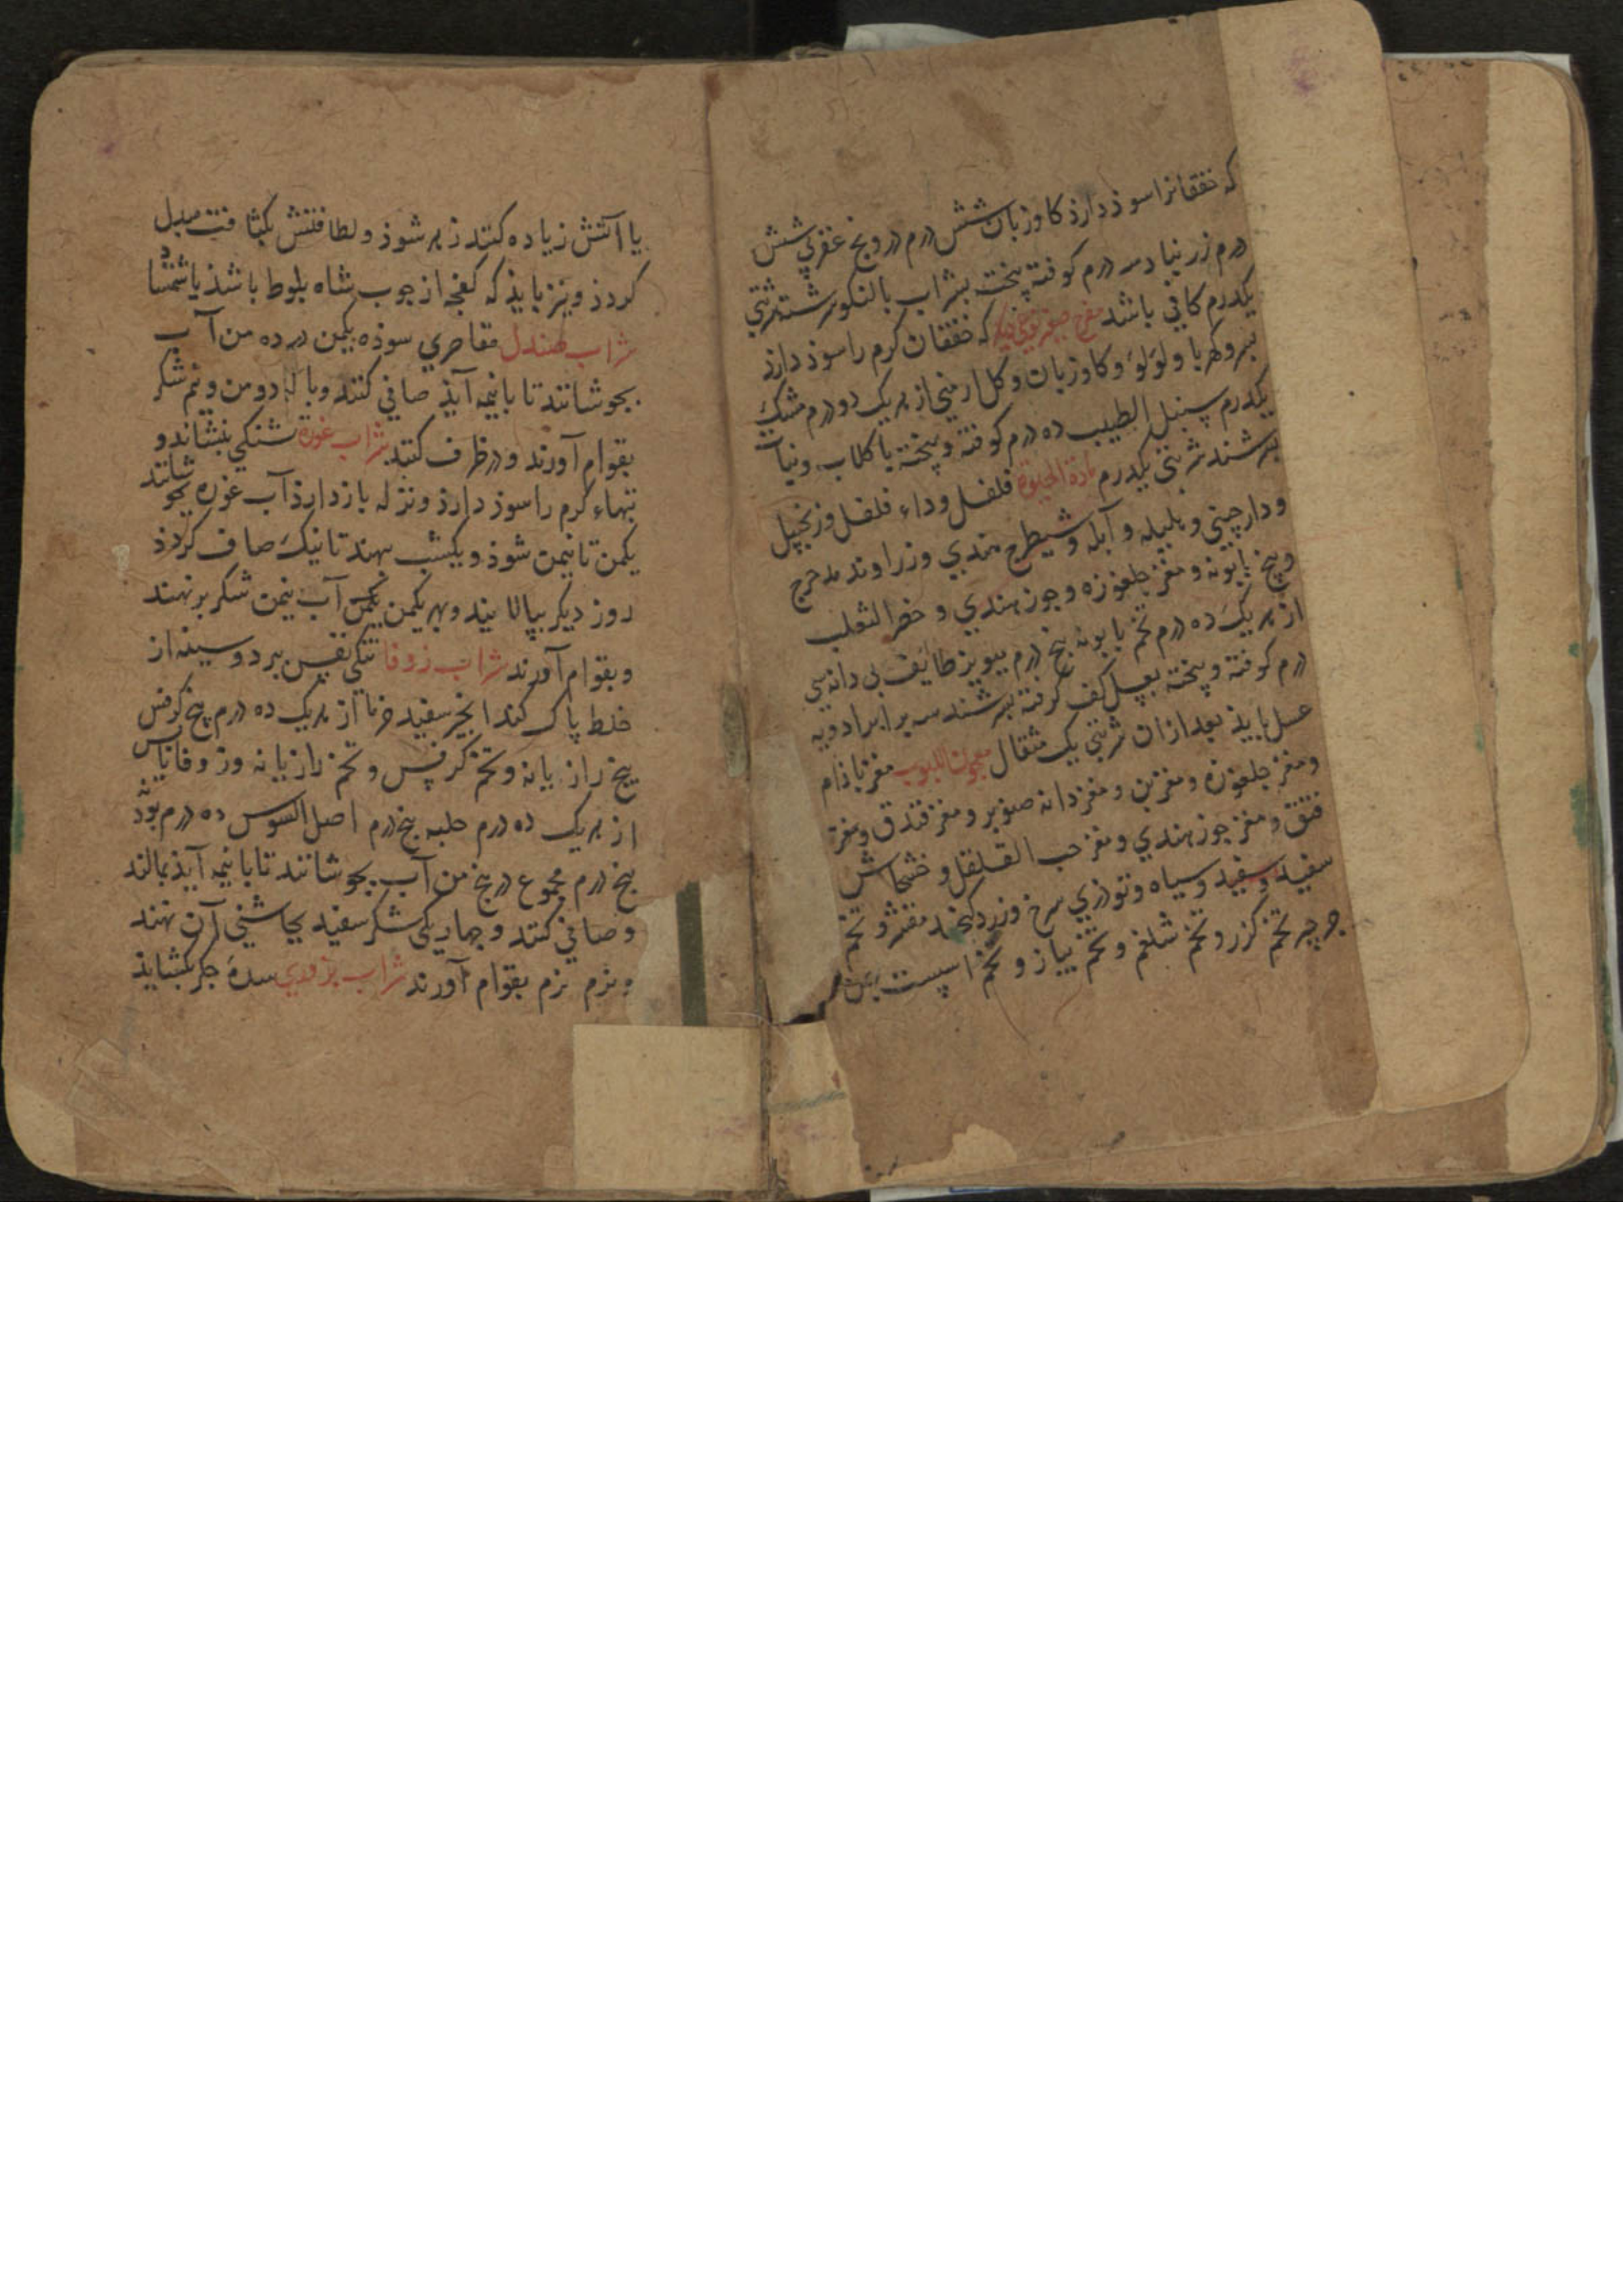 که خفقانرا سوذ دارذ کاوزبان شش درم درونج عقربي شش
درم زرنباد سه درم کوفته پخته بشراب بالنکو سرشته شربتي
یکدرم کافي باشد مفرح که خفقان کرم را سوذ دارذ
بسد و کهربا و لولو و کاوزبان و کل ارمني از هر یک دو درم مشک
یکدرم سنبل الطیب ده درم کوفته و پخته با کلاب و نبات
بسرشند شربتي یکدرم مادة الحیوة فلفل و دار فلفل و زنجبیل
و دارچیني و هلیله و آمله و شیطرج هندي و زراوند مدحرج
و بیخ بابونه و مغز جلغوزه و جوز هندي و خصي الثعلب
از هر یک ده درم تخم بابونه پنج درم میویز طایفي بي دانه سي
درم کوفته و پخته بعسل کف کرفته بسرشند سه برابر ادویه
عسل بایذ بعد ازان شربتي یک مثقال معجون اللبوب مغز باذام
و مغز جلغوزه و مغز بن و مغز دانه صنوبر و مغز فندق و مغز
فستق و مغز جوز هندي و مغز حب القلقل و خشخاش
سفید و سفید و سیاه و توذري سرخ و زرد کنجد مقشر و تخم
جرجیر تخم کزر و تخم شلغم و تخم پیاز و تخم اسپست
یا آتش زیاده کنند زهر شوذ و لطافتش بکثافت مبدل
کردذ و نیز بایذ که کفجه از جوب شاه بلوط باشذ یا شمشاد
شراب صندل مقاصري سوذه یکمن در ده من آب
بجوشانند تا بانیمه آیذ صافي کنند و با دو من و نیم شکر
بقوام آورند و در ظرف کنند شراب غوره تشنکي بنشاند و
تبهاء کرم را سوذ دارذ و نزله بازدارذ آب غوره بجوشانند
یکمن تا نیمن شوذ و یکشب بنهند تا نیک صاف کردذ
روز دیکر بپالایند و بهر یکمن آب نیمن شکر برنهند
و بقوام آورند شراب زوفا تنکي نفس ببرد و سینه از
خلط پاک کند انجیر سفید خرما از هر یک ده درم بیخ کرفس
بیخ رازیانه و تخم کرفس و تخم رازیانه و زوفا یابس
از هر یک ده درم حلبه پنج درم اصل السوس ده درم
پنج درم مجموع در پنج من آب بجوشانند تا بانیمه آیذ بمالند
و صافي کنند و جهار یکي شکر سفید بجاشني آن نهند
و نرم نرم بقوام آورند شراب سده جکر بکشایذ